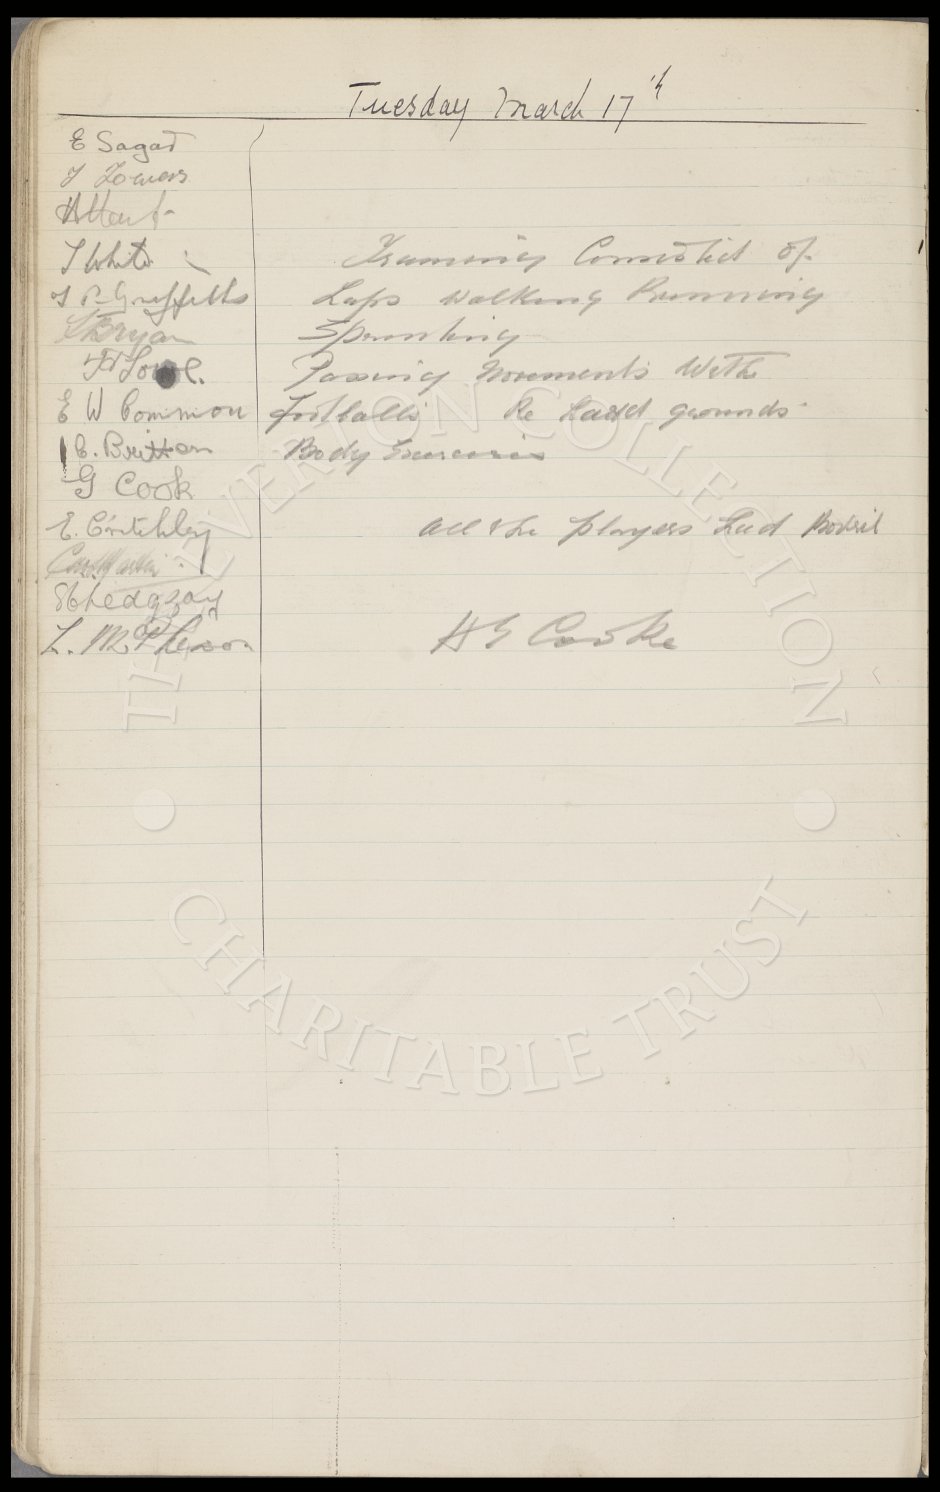 Tuesday March 17th
E Sagar
J
White
J P Griffiths
E W Common
C. Britton
G Cook
E. Critchley
L. McPherson
Training Consisted of
Laps Walking Running
Sprinting
Passing Movements With
Footballs Re Hard grounds
Body Exercises
All the players had Bovril
H E Cooke
THE EVERTON COLLECTION
CHARITABLE TRUST